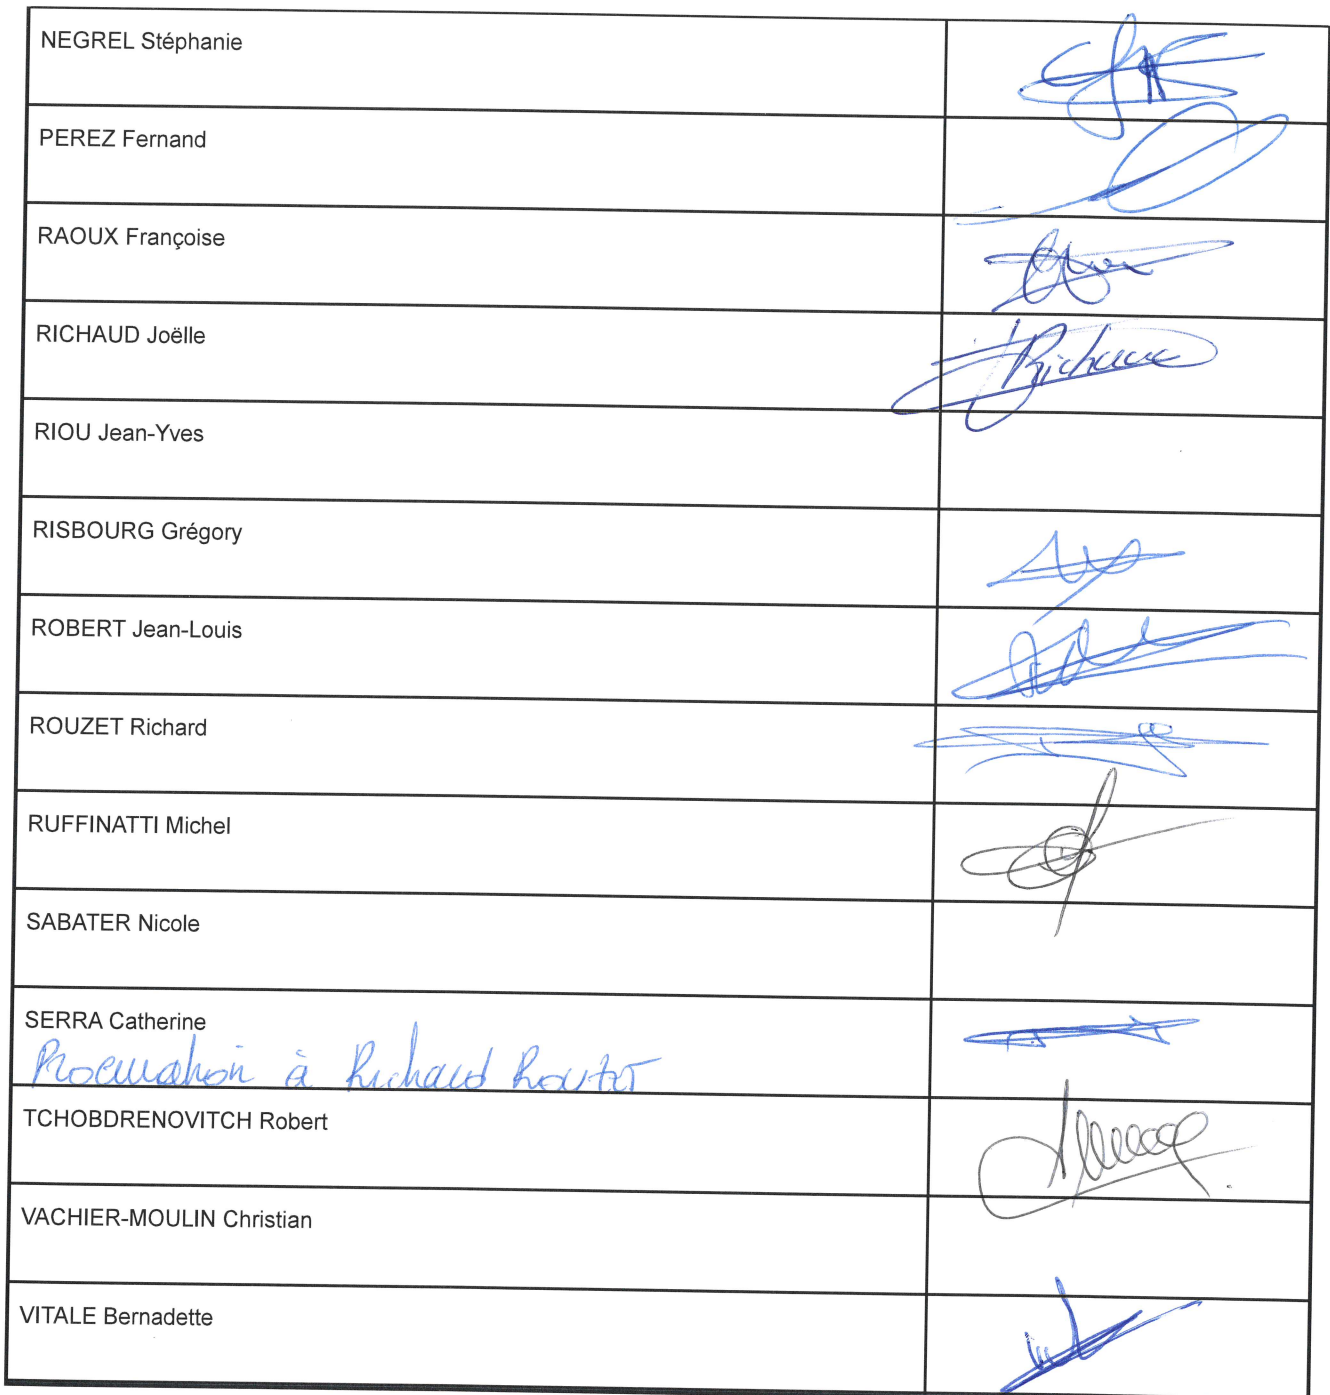 NEGREL Stéphanie
PEREZ Fernand
RAOUX Françoise
RICHAUD Joëlle
RIOU Jean-Yves
RISBOURG Grégory
ROBERT Jean-Louis
ROUZET Richard
RUFFINATTI Michel
SABATER Nicole
SERRA Catherine
Procuration à Richard Rouzet
TCHOBDRENOVITCH Robert
VACHIER-MOULIN Christian
VITALE Bernadette